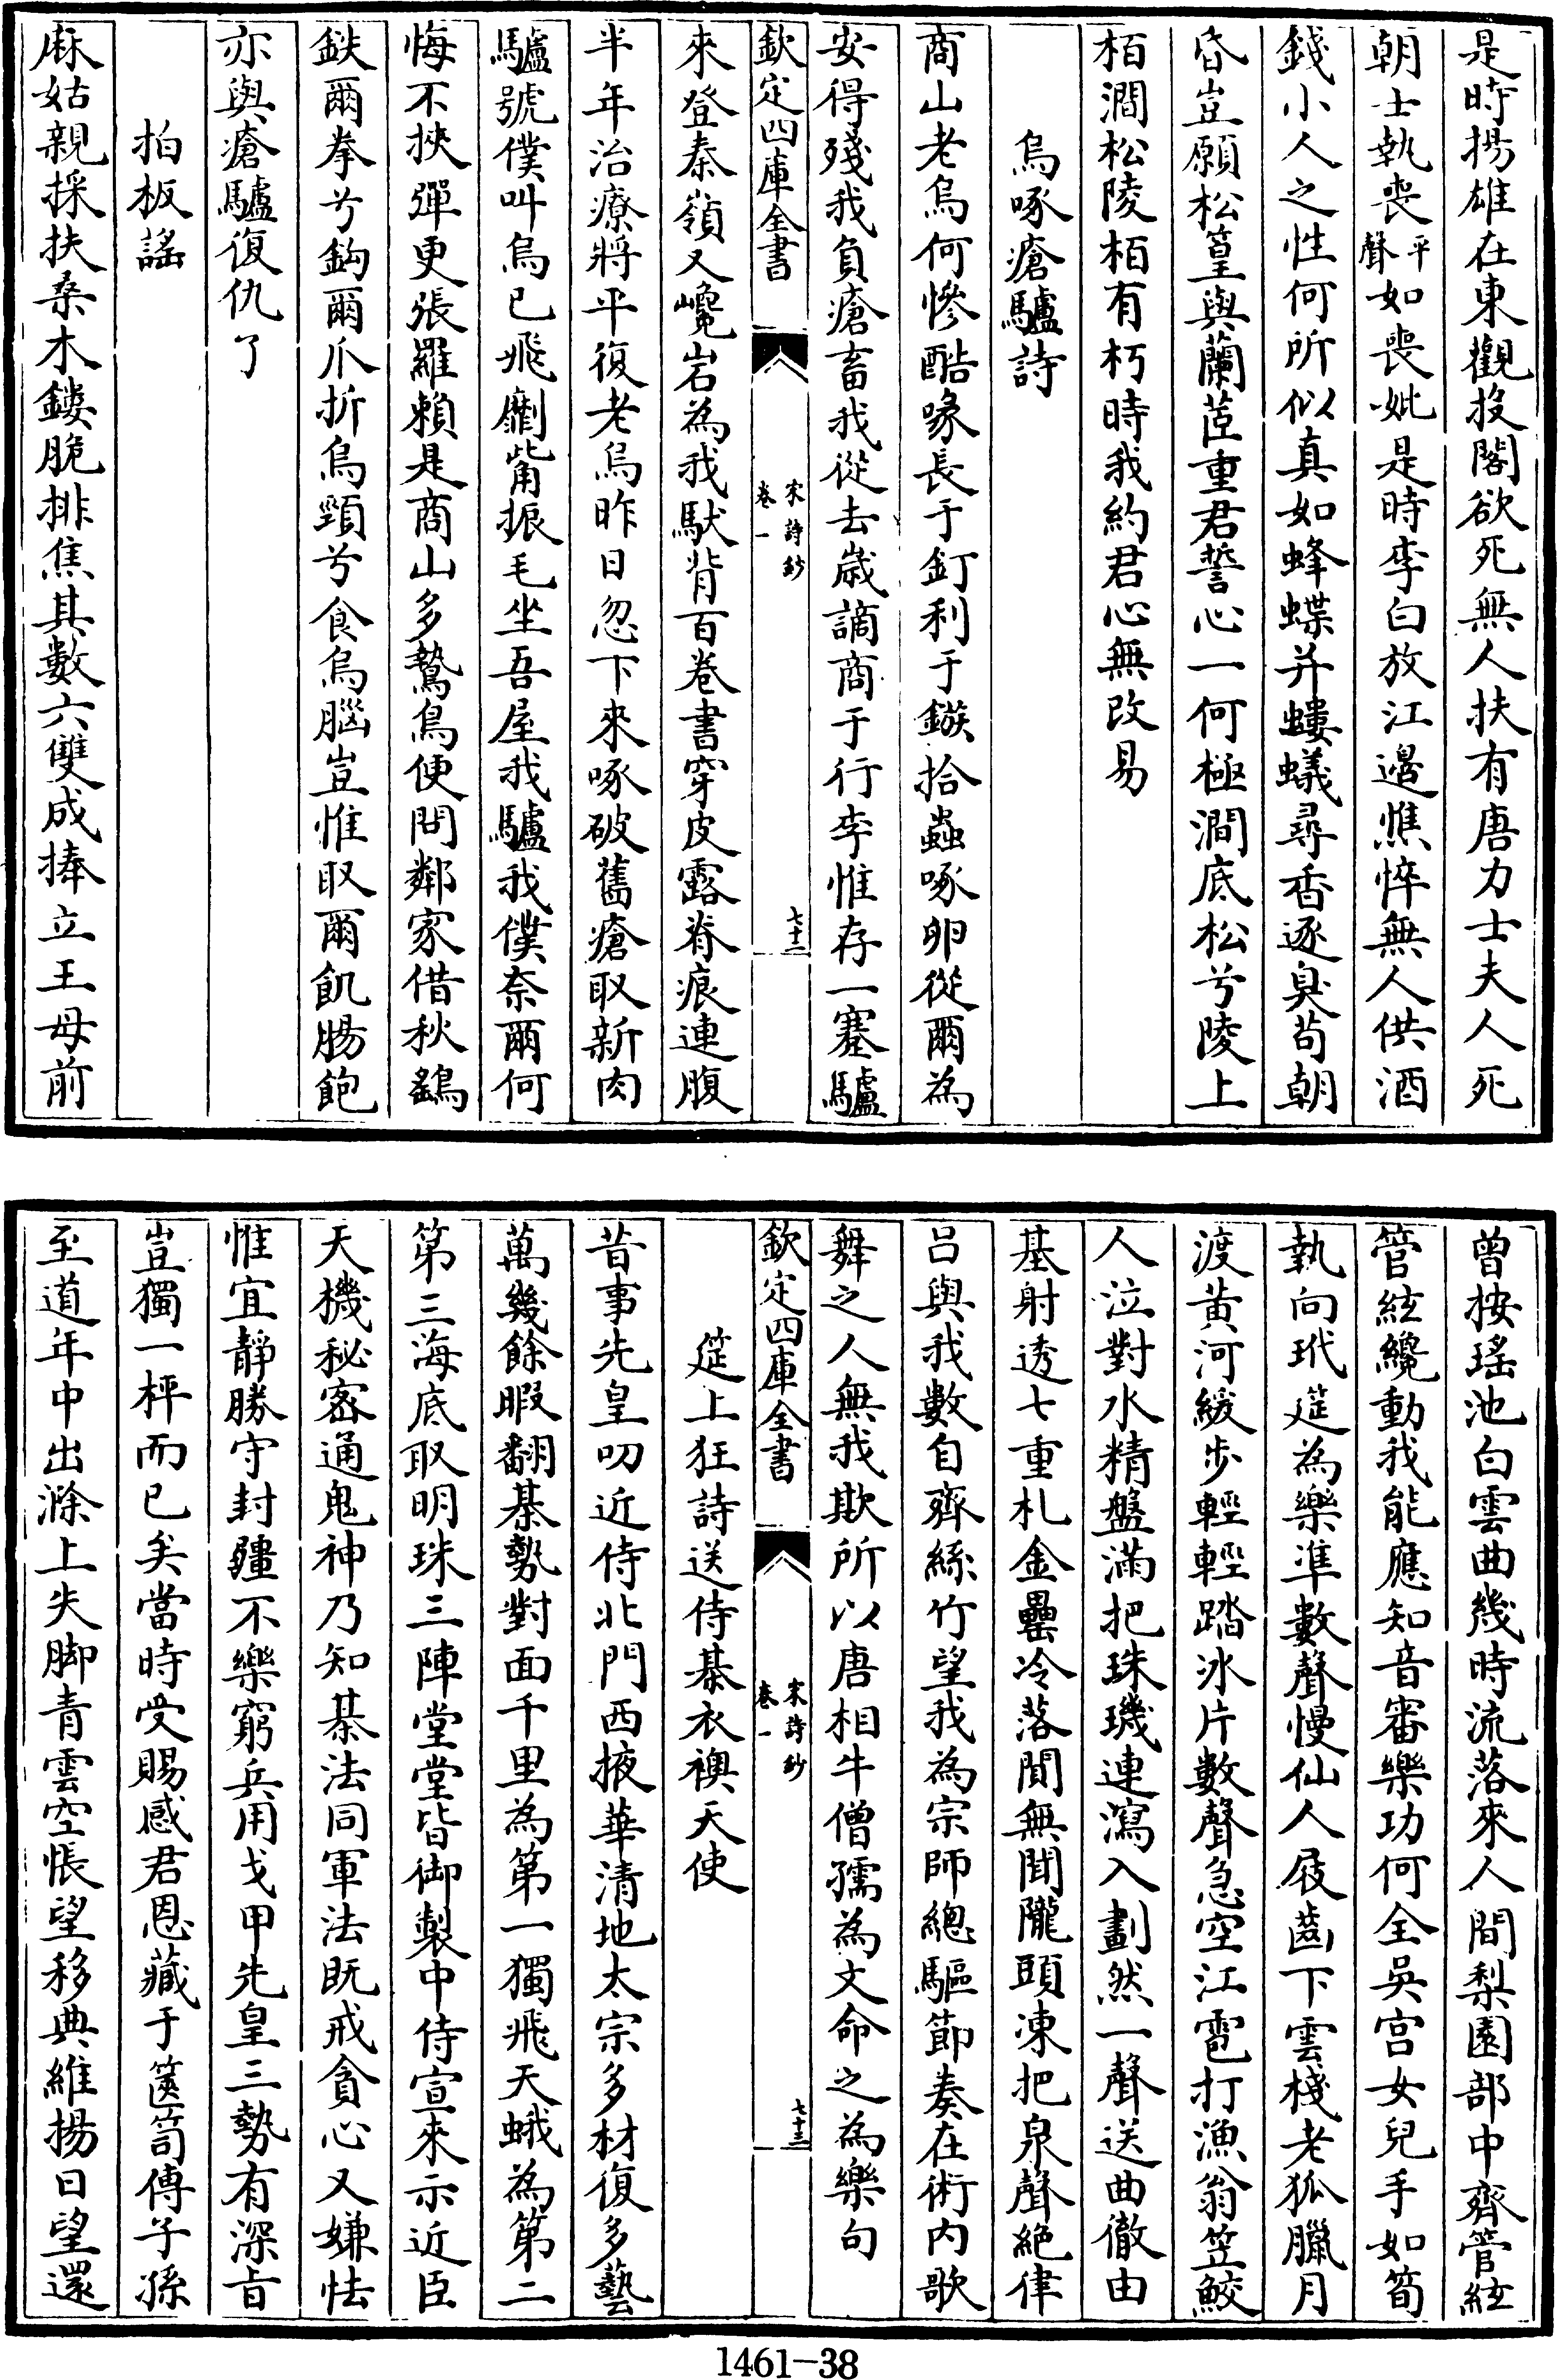 是時揚雄在東觀投閣欲死無人扶有唐力士夫人死
朝士執喪平聲如喪妣是時李白放江邊憔悴無人供酒
錢小人之性何所似真如蜂蝶并螻蟻尋香逐臭苟朝
昏豈願松篁與蘭茝重君誓心一何極澗底松兮陵上
栢澗松陵栢有朽時我約君心無改易
烏啄瘡驢詩
商山老烏何慘酷喙長于釘利于鏃拾蟲啄卵從爾為
安得殘我負瘡畜我從去歲謫商于行李惟存一蹇驢
欽定四庫全書
宋詩鈔
卷一
七十二
來登秦嶺又巉岩為我馱背百卷書穿皮露脊痕連腹
半年治療將平復老烏昨日忽下來啄破舊瘡取新肉
驢號僕叫烏已飛劘觜振毛坐吾屋我驢我僕奈爾何
悔不挾彈更張羅賴是商山多鷙鳥便問鄰家借秋鷂
鈇爾拳兮鈎爾爪折烏頸兮食烏腦豈惟取爾飢腸飽
亦與瘡驢復仇了
拍板謠
麻姑親採扶桑木鏤脆排焦其數六雙成捧立王母前
曾按瑤池白雲曲幾時流落來人間梨園部中齊管絃
管絃纔動我能應知音審樂功何全吳宫女兒手如筍
執向玳筵為樂準數聲慢仙人屐齒下雲棧老狐臘月
渡黃河緩步輕輕踏冰片數聲急空江雹打漁翁笠鮫
人泣對水精盤滿把珠璣連瀉入劃然一聲送曲徹由
基射透七重札金罍冷落閴無聞隴頭凍把泉聲絕律
吕與我數自齊絲竹望我為宗師總驅節奏在術内歌
舞之人無我欺所以唐相牛僧孺為文命之為樂句
欽定四庫全書
宋詩鈔
卷一
七十三
筵上狂詩送侍棊衣襖天使
昔事先皇叨近侍北門西掖華清地太宗多材復多藝
萬幾餘暇翻棊勢對面千里為第一獨飛天蛾為第二
第三海底取明珠三陣堂堂皆御製中侍宣來示近臣
天機秘密通鬼神乃知棊法同軍法既戒貪心又嫌怯
惟宜靜勝守封疆不樂窮兵用戈甲先皇三勢有深旨
豈獨一枰而已矣當時受賜感君恩藏于篋笥傳子孫
至道年中出滁上失脚青雲空悵望移典維揚日望還
1461—38